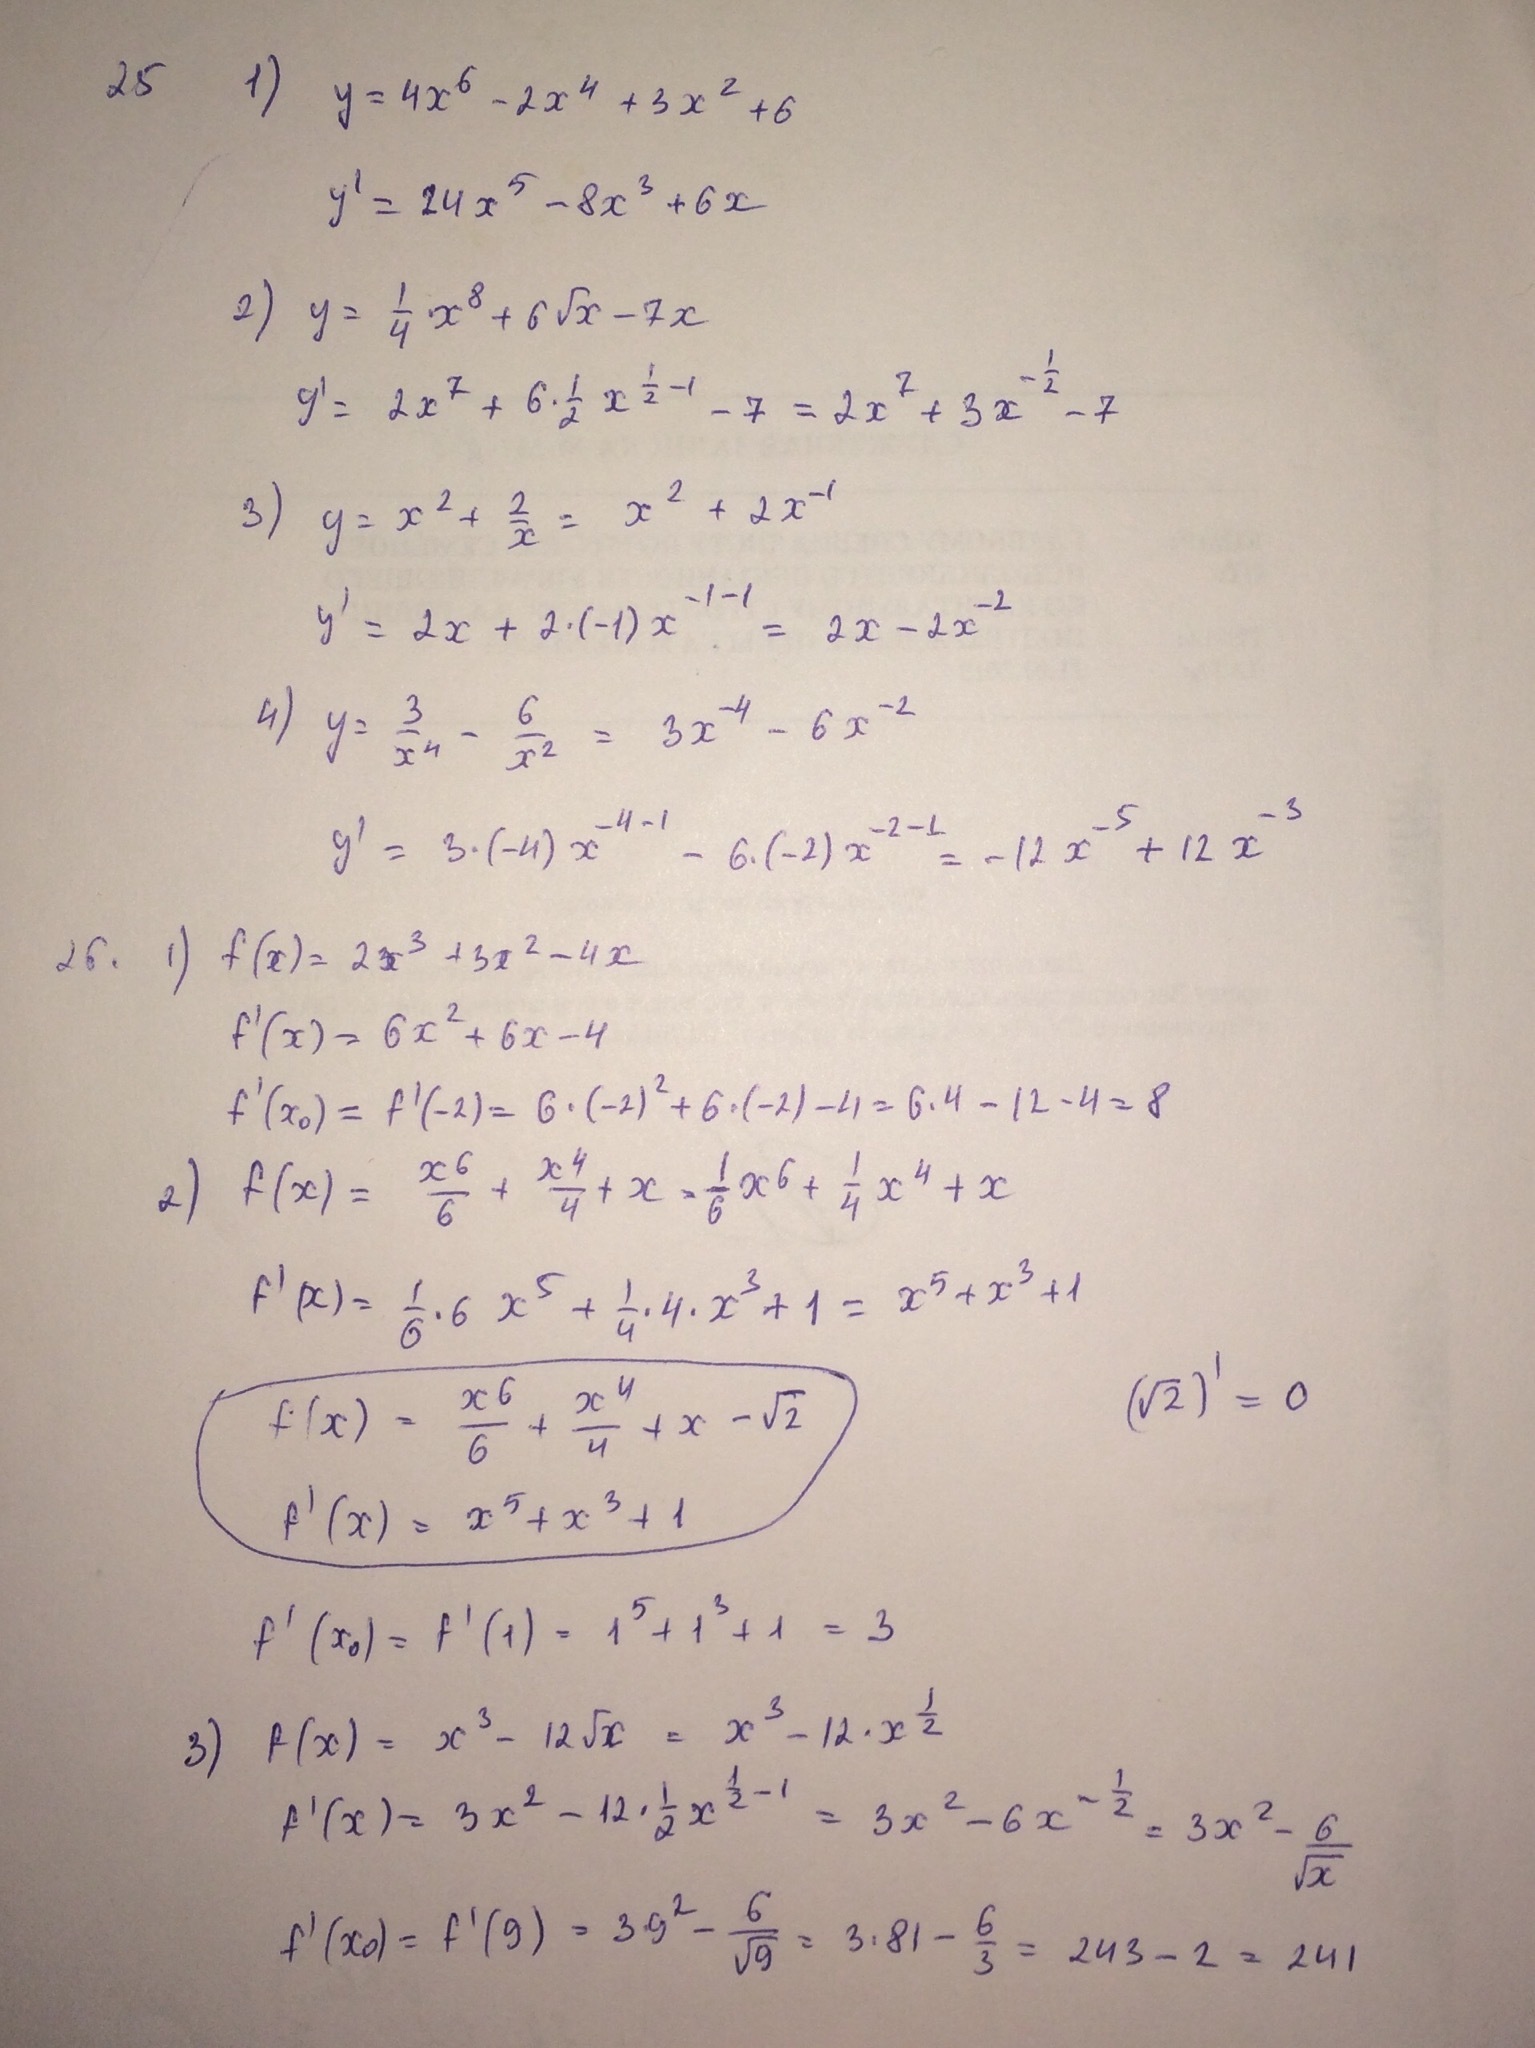 25 1) y = 4x⁶ - 2x⁴ + 3x² + 6
y' = 24x⁵ - 8x³ + 6x
2) y = 1/4 · x⁸ + 6√x - 7x
y' = 2x⁷ + 6 · 1/2 x^(1/2 - 1) - 7 = 2x⁷ + 3x^(-1/2) - 7
3) y = x² + 2/x = x² + 2x⁻¹
y' = 2x + 2·(-1)x^(-1-1) = 2x - 2x⁻²
4) y = 3/x⁴ - 6/x² = 3x⁻⁴ - 6x⁻²
y' = 3·(-4)x^(-4-1) - 6·(-2)x^(-2-1) = -12x⁻⁵ + 12x⁻³
26. 1) f(x) = 2x³ + 3x² - 4x
f'(x) = 6x² + 6x - 4
f'(x₀) = f'(-2) = 6·(-2)² + 6·(-2) - 4 = 6·4 - 12 - 4 = 8
2) f(x) = x⁶/6 + x⁴/4 + x = 1/6 x⁶ + 1/4 x⁴ + x
f'(x) = 1/6 · 6 x⁵ + 1/4 · 4 · x³ + 1 = x⁵ + x³ + 1
f(x) = x⁶/6 + x⁴/4 + x - √2 (√2)' = 0
f'(x) = x⁵ + x³ + 1
f'(x₀) = f'(1) = 1⁵ + 1³ + 1 = 3
3) f(x) = x³ - 12√x = x³ - 12 · x^(1/2)
f'(x) = 3x² - 12 · 1/2 x^(1/2 - 1) = 3x² - 6x^(-1/2) = 3x² - 6/√x
f'(x₀) = f'(9) = 3·9² - 6/√9 = 3·81 - 6/3 = 243 - 2 = 241